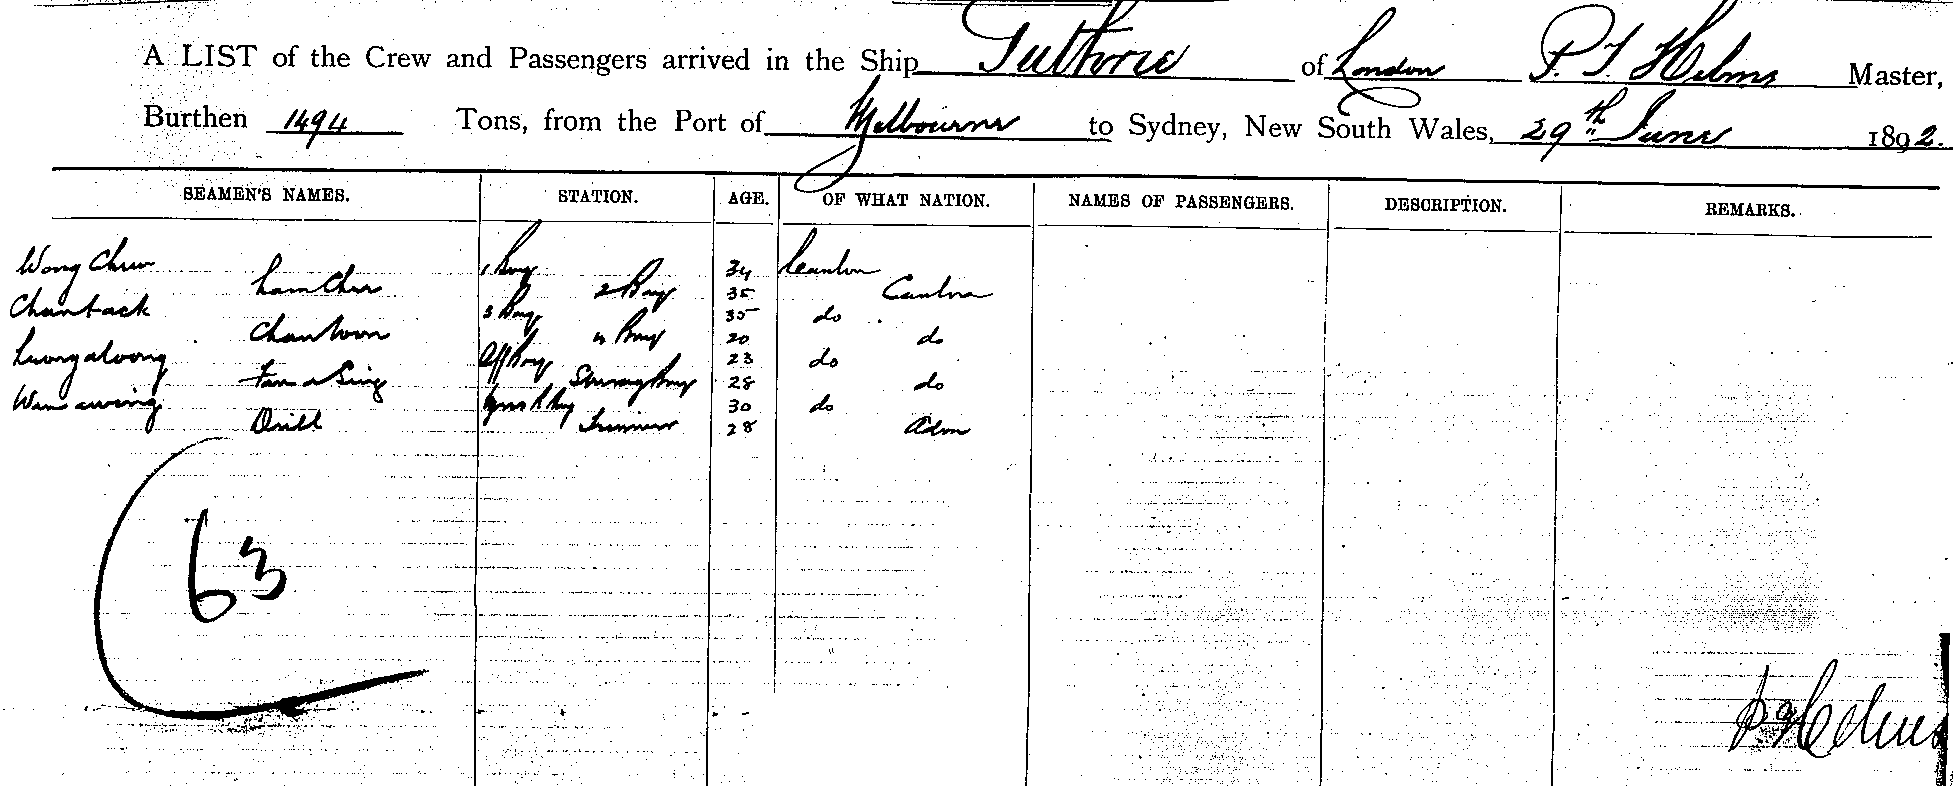 A LIST of the Crew and Passengers arrived in the Ship Guthrie of London P. T. Helms Master,
Burthen 1494 Tons, from the Port of Melbourne to Sydney, New South Wales, 29th June 1892.
SEAMEN'S NAMES. STATION. AGE. OF WHAT NATION. NAMES OF PASSENGERS. DESCRIPTION. REMARKS.
Wong Chew 1 Boy 34 Canton
Lam Chee 2 Boy 35 Canton
Chan back 3 Boy 35 do
Chan Woon 4 Boy 20 do
23 do
28 do
30 do
Trimmer 28 Aden
63
Helms